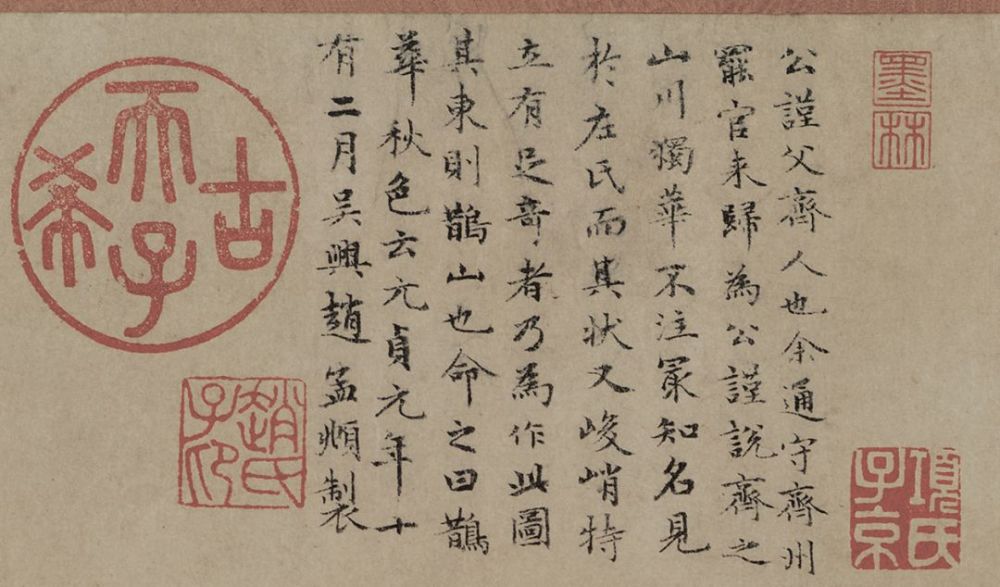 墨林
項氏子京
公謹父齊人也余通守齊州
罷官来歸為公謹説齊之
山川獨華不注冣知名見
於左氏而其状又峻峭特
立有足奇者乃為作此圖
其東則鵲山也命之曰鵲
華秋色云元貞元年十
有二月吴興趙孟頫製
古希天子
趙氏子昂